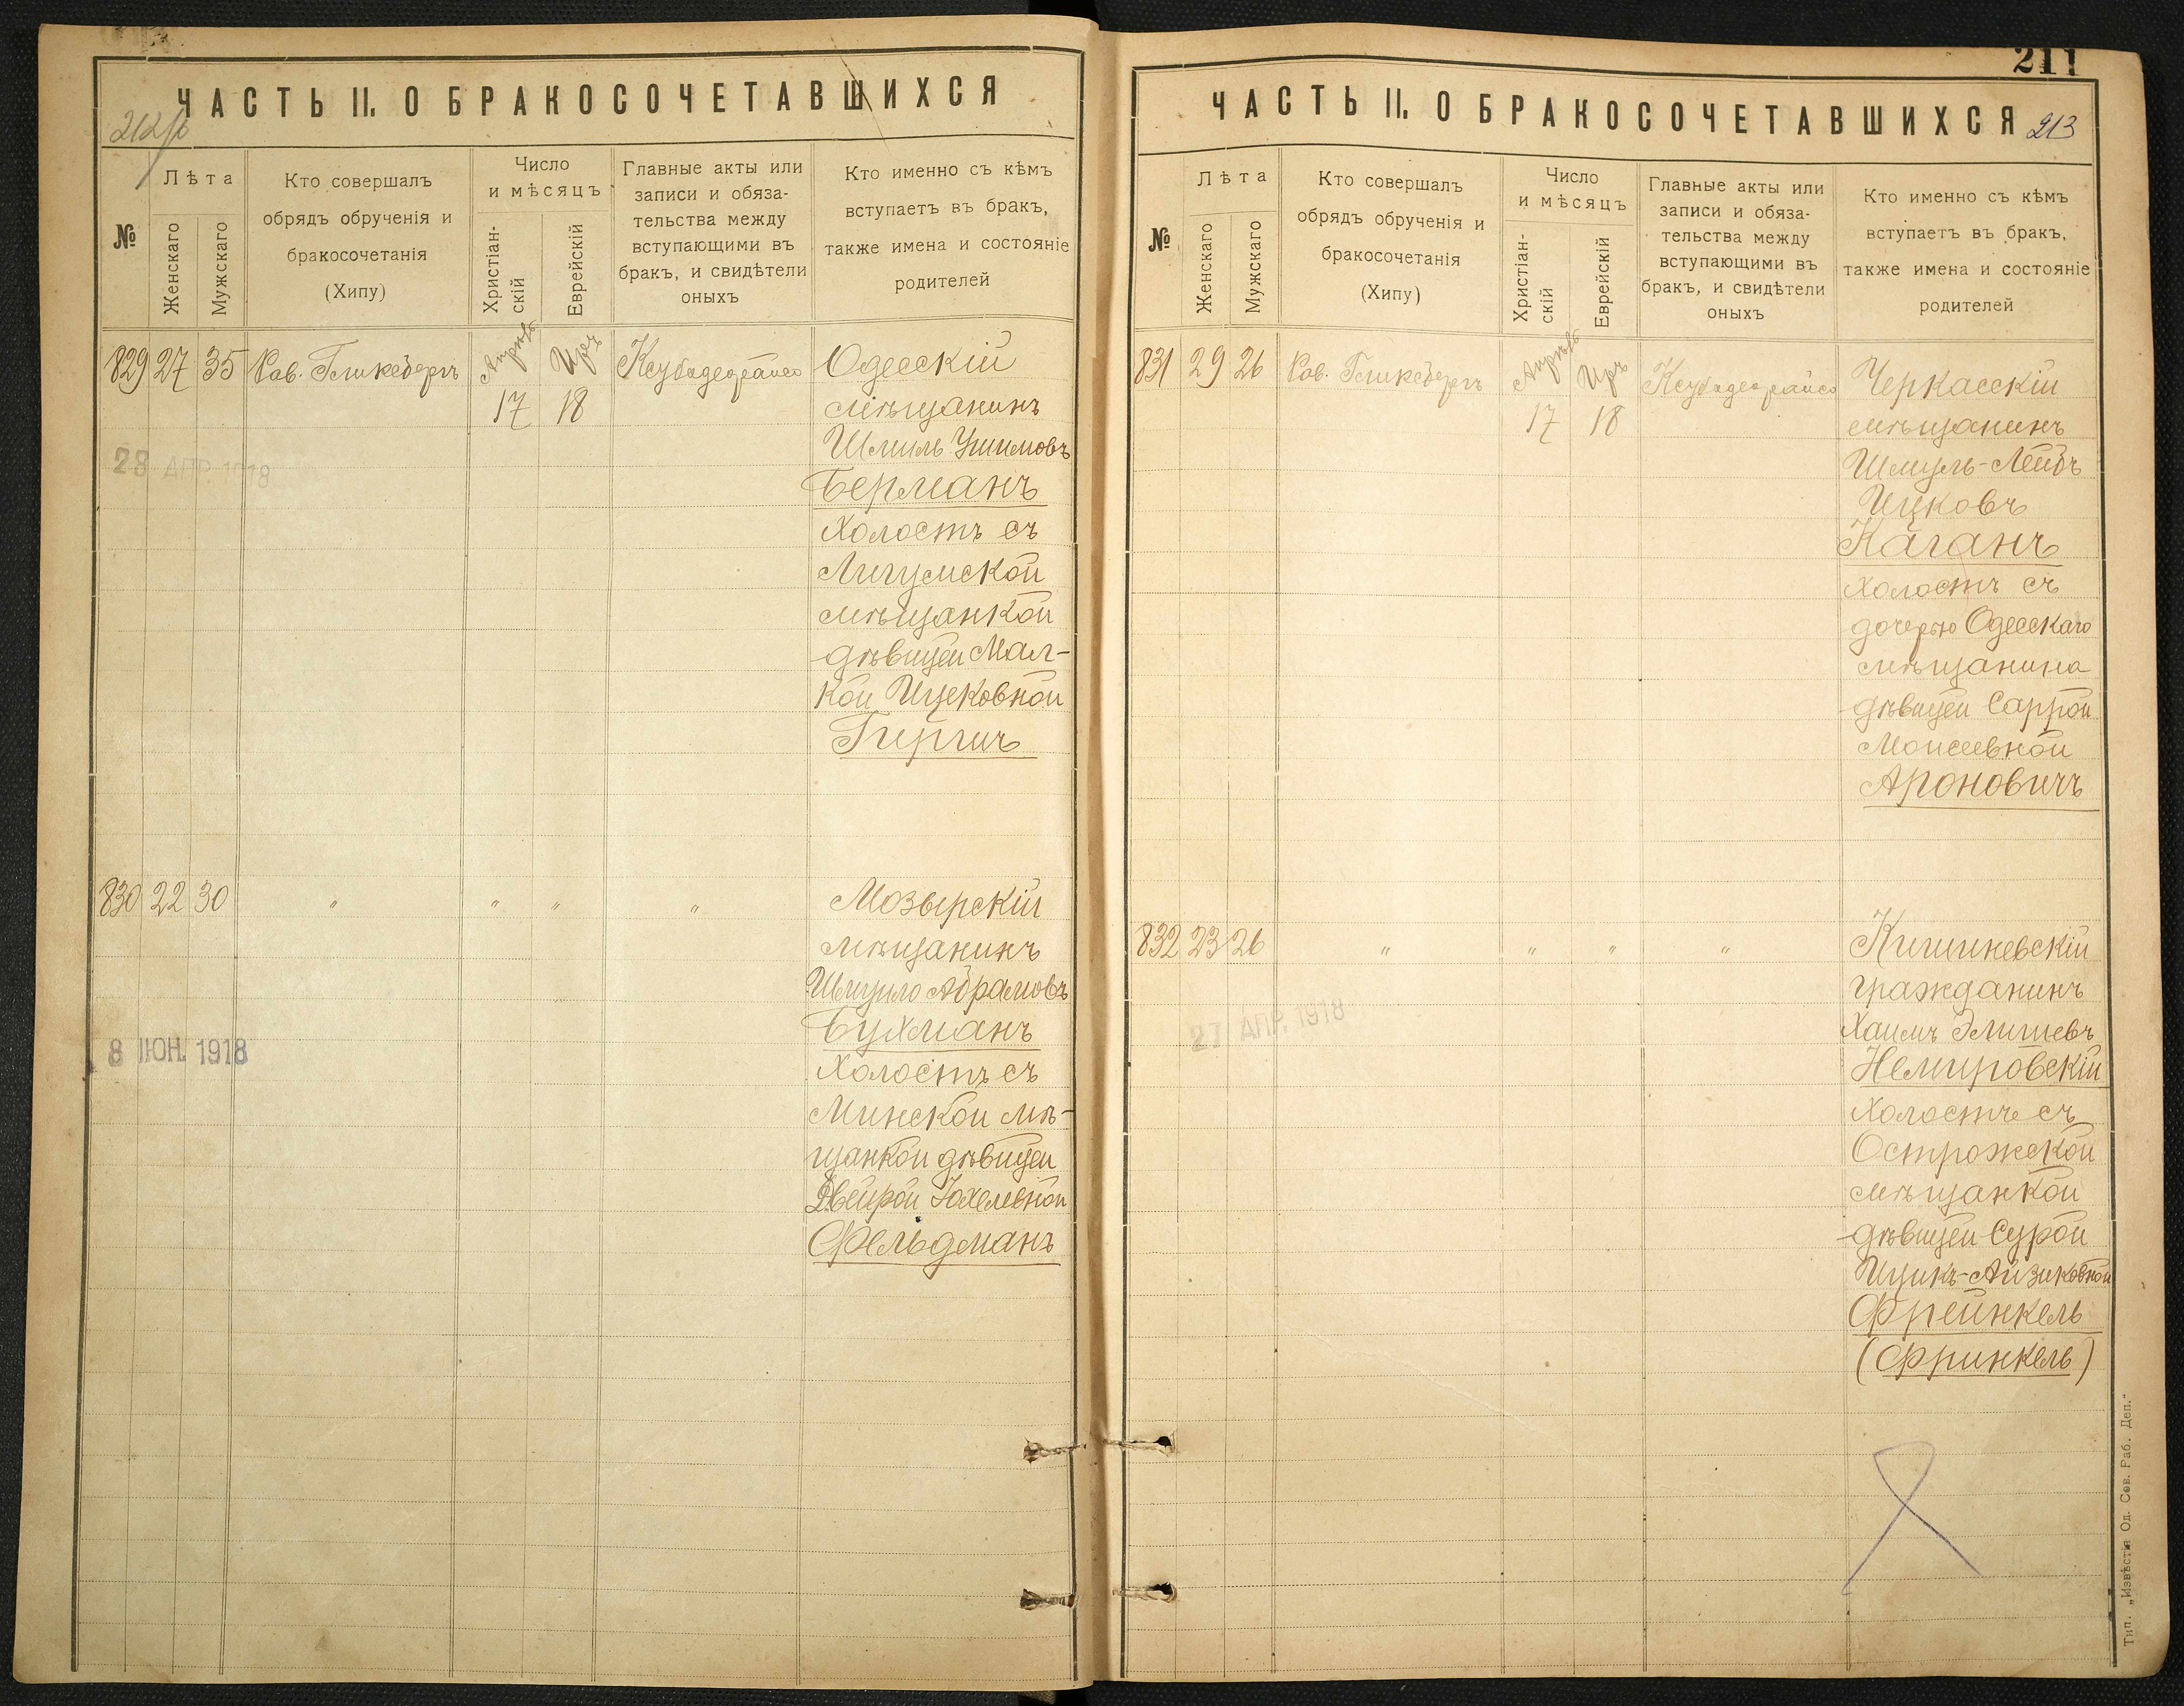 ЧАСТЬ II. О БРАКОСОЧЕТАВШИХСЯ
№
Лѣта
Женскаго
Мужскаго
Кто совершалъ
обрядъ обрученія и
бракосочетанія
(Хипу)
Число
и мѣсяцъ
Христіан-
скій
Еврейскій
Главные акты или
записи и обяза-
тельства между
вступающими въ
бракъ, и свидѣтели
оныхъ
Кто именно съ кѣмъ
вступаетъ въ бракъ,
также имена и состояніе
родителей
829 27 35 Рав. Гликсбергъ Апрѣль 17 Иръ 18
Одесскій
мѣщанинъ
Шмиль
Берманъ
холостъ съ
Лигумской
мѣщанкой
дѣвицей Мал-
кой Ицековной
Гиргич
28 АПР. 1918
830 22 30 " " " "
Мозырскій
мѣщанинъ
Шмуило Абрамовъ
Бухманъ
холостъ съ
Минской мѣ-
щанкой дѣвицей
Двейрой Іохелевной
Фельдманъ
8 ІЮН. 1918
211
ЧАСТЬ II. О БРАКОСОЧЕТАВШИХСЯ 213
№
Лѣта
Женскаго
Мужскаго
Кто совершалъ
обрядъ обрученія и
бракосочетанія
(Хипу)
Число
и мѣсяцъ
Христіан-
скій
Еврейскій
Главные акты или
записи и обяза-
тельства между
вступающими въ
бракъ, и свидѣтели
оныхъ
Кто именно съ кѣмъ
вступаетъ въ бракъ,
также имена и состояніе
родителей
831 29 26 Рав. Гликсбергъ Апрѣль 17 Иръ 18
Черкасскій
мѣщанинъ
Шмуль-Лейбъ
Ицковъ
Каганъ
холостъ съ
дочерью Одесскаго
мѣщанина
дѣвицей Саррой
Моисеевной
Ароновичъ
832 23 26 " " " "
Кишиневскій
гражданинъ
Хаимъ Элишевъ
Немировскій
холостъ съ
Острожской
мѣщанкой
дѣвицей Сурой
Ицикъ-Айзиковной
Фрейнкель
(Фринкель)
27 АПР. 1918
Тип. „Извѣстія Од. Сов. Раб. Деп."